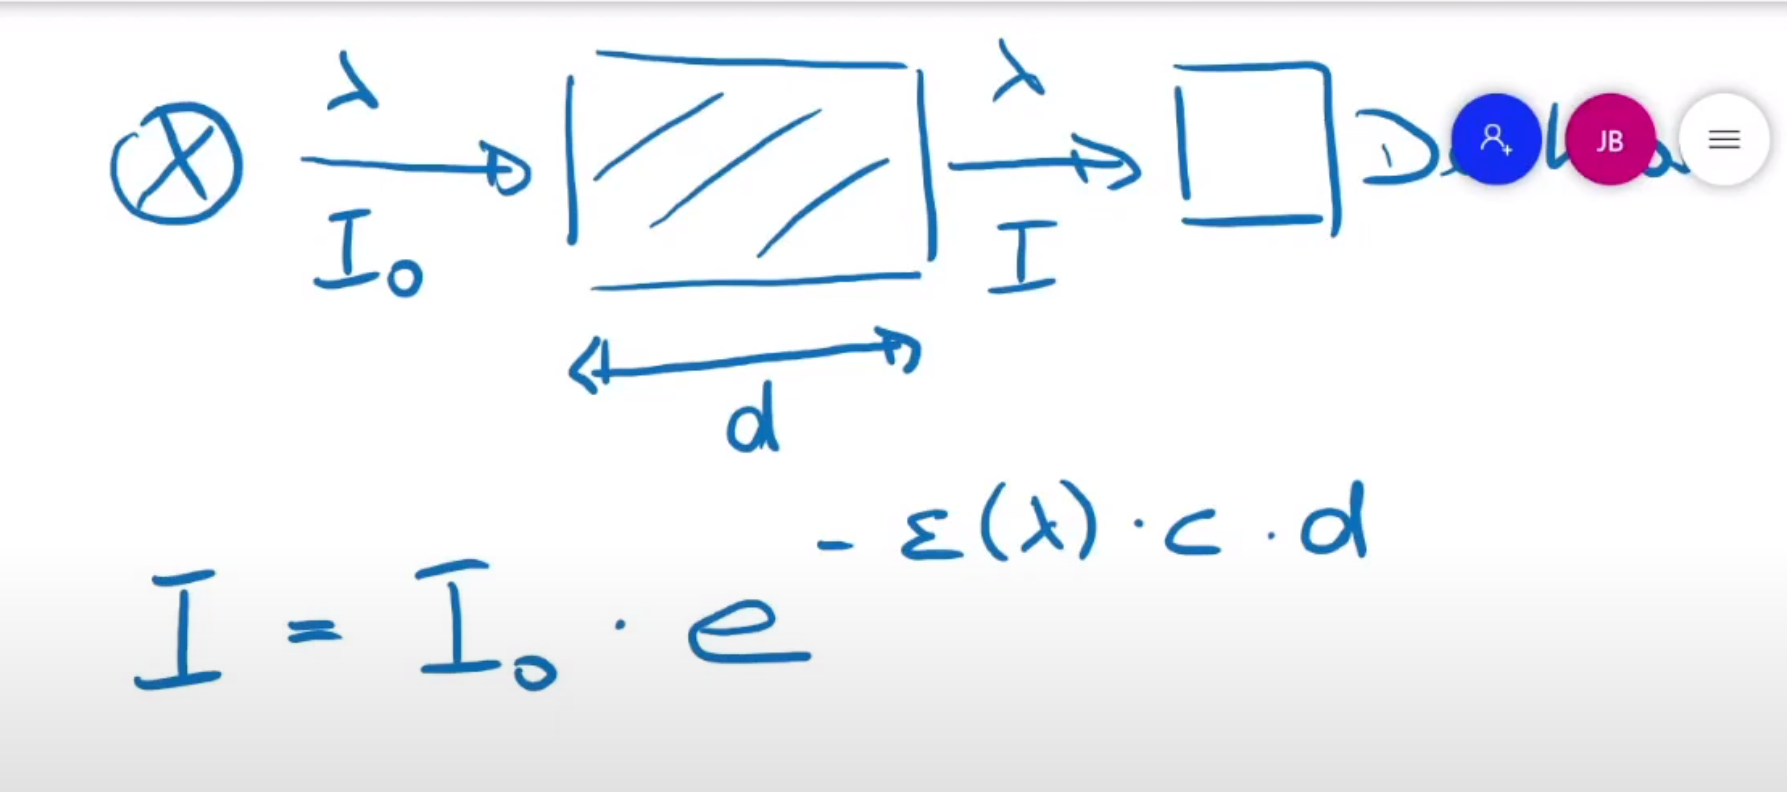 λ λ
I₀ I JB
d
I = I₀ · e^{- ε(λ) · c · d}